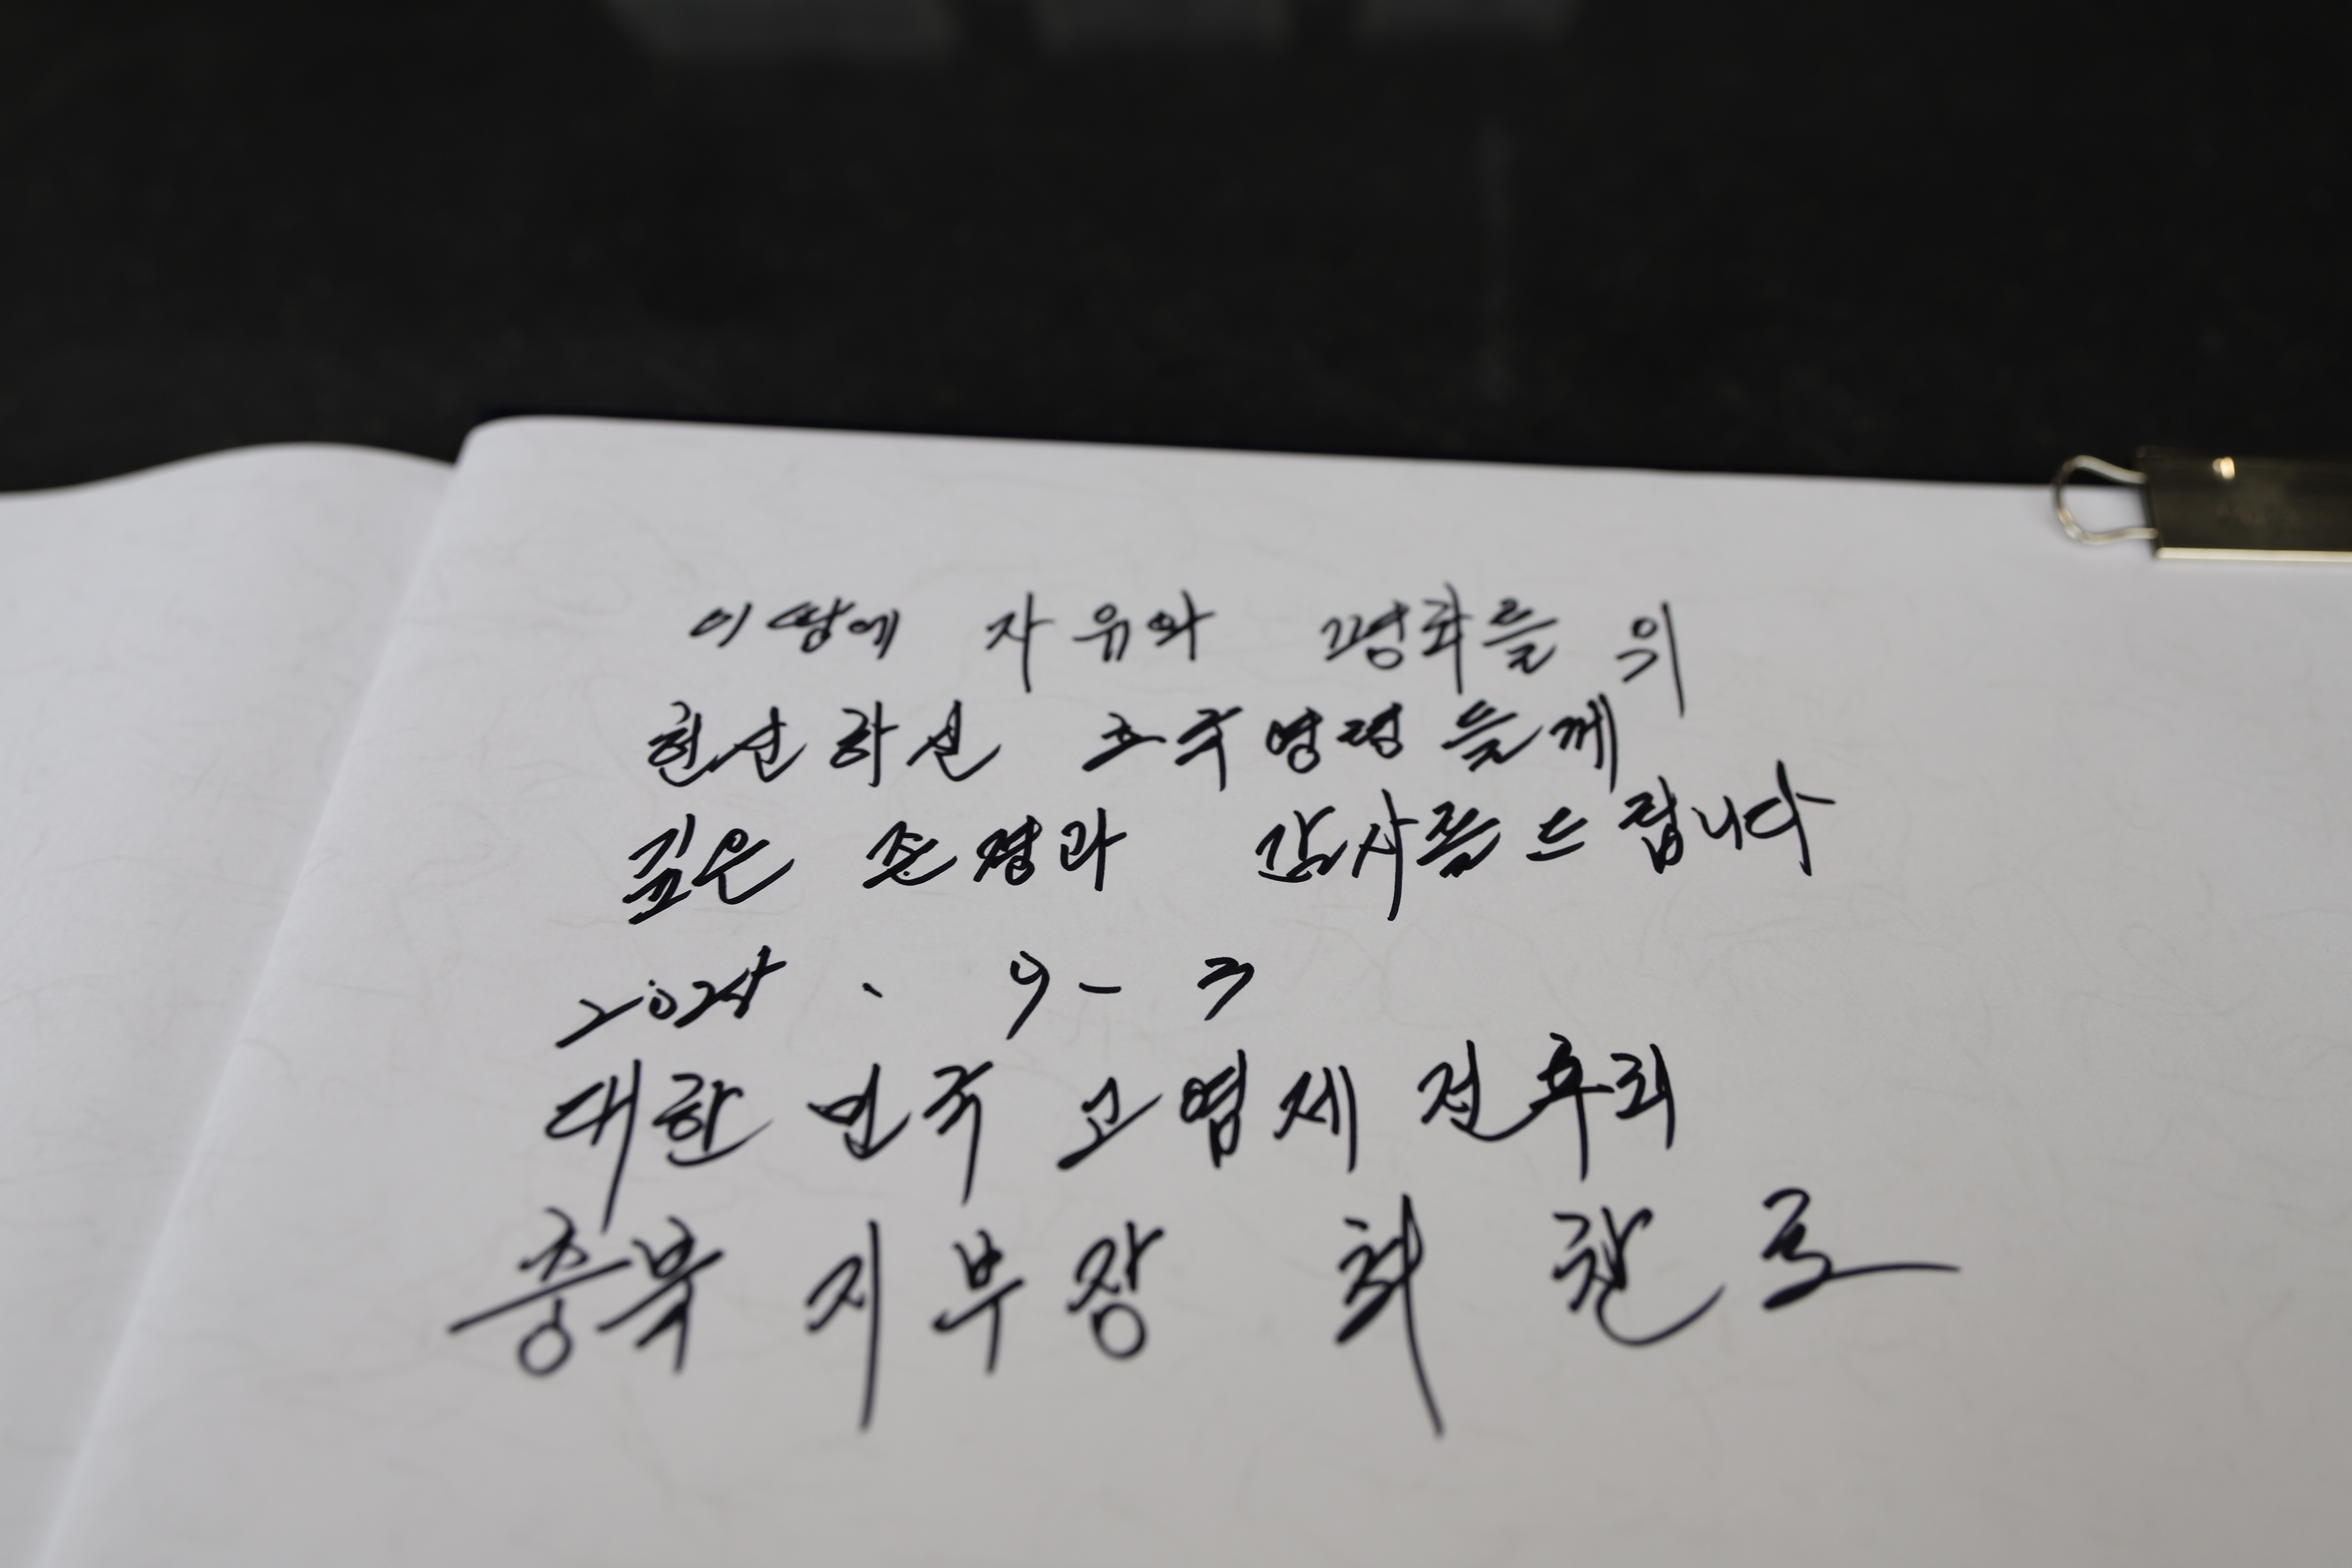 이 땅에 자유와 평화를 위
헌신하신 호국영령들께
깊은 존경과 감사를 드립니다
2024. 9-3
대한민국 고엽제 전우회
충북 지부장 최